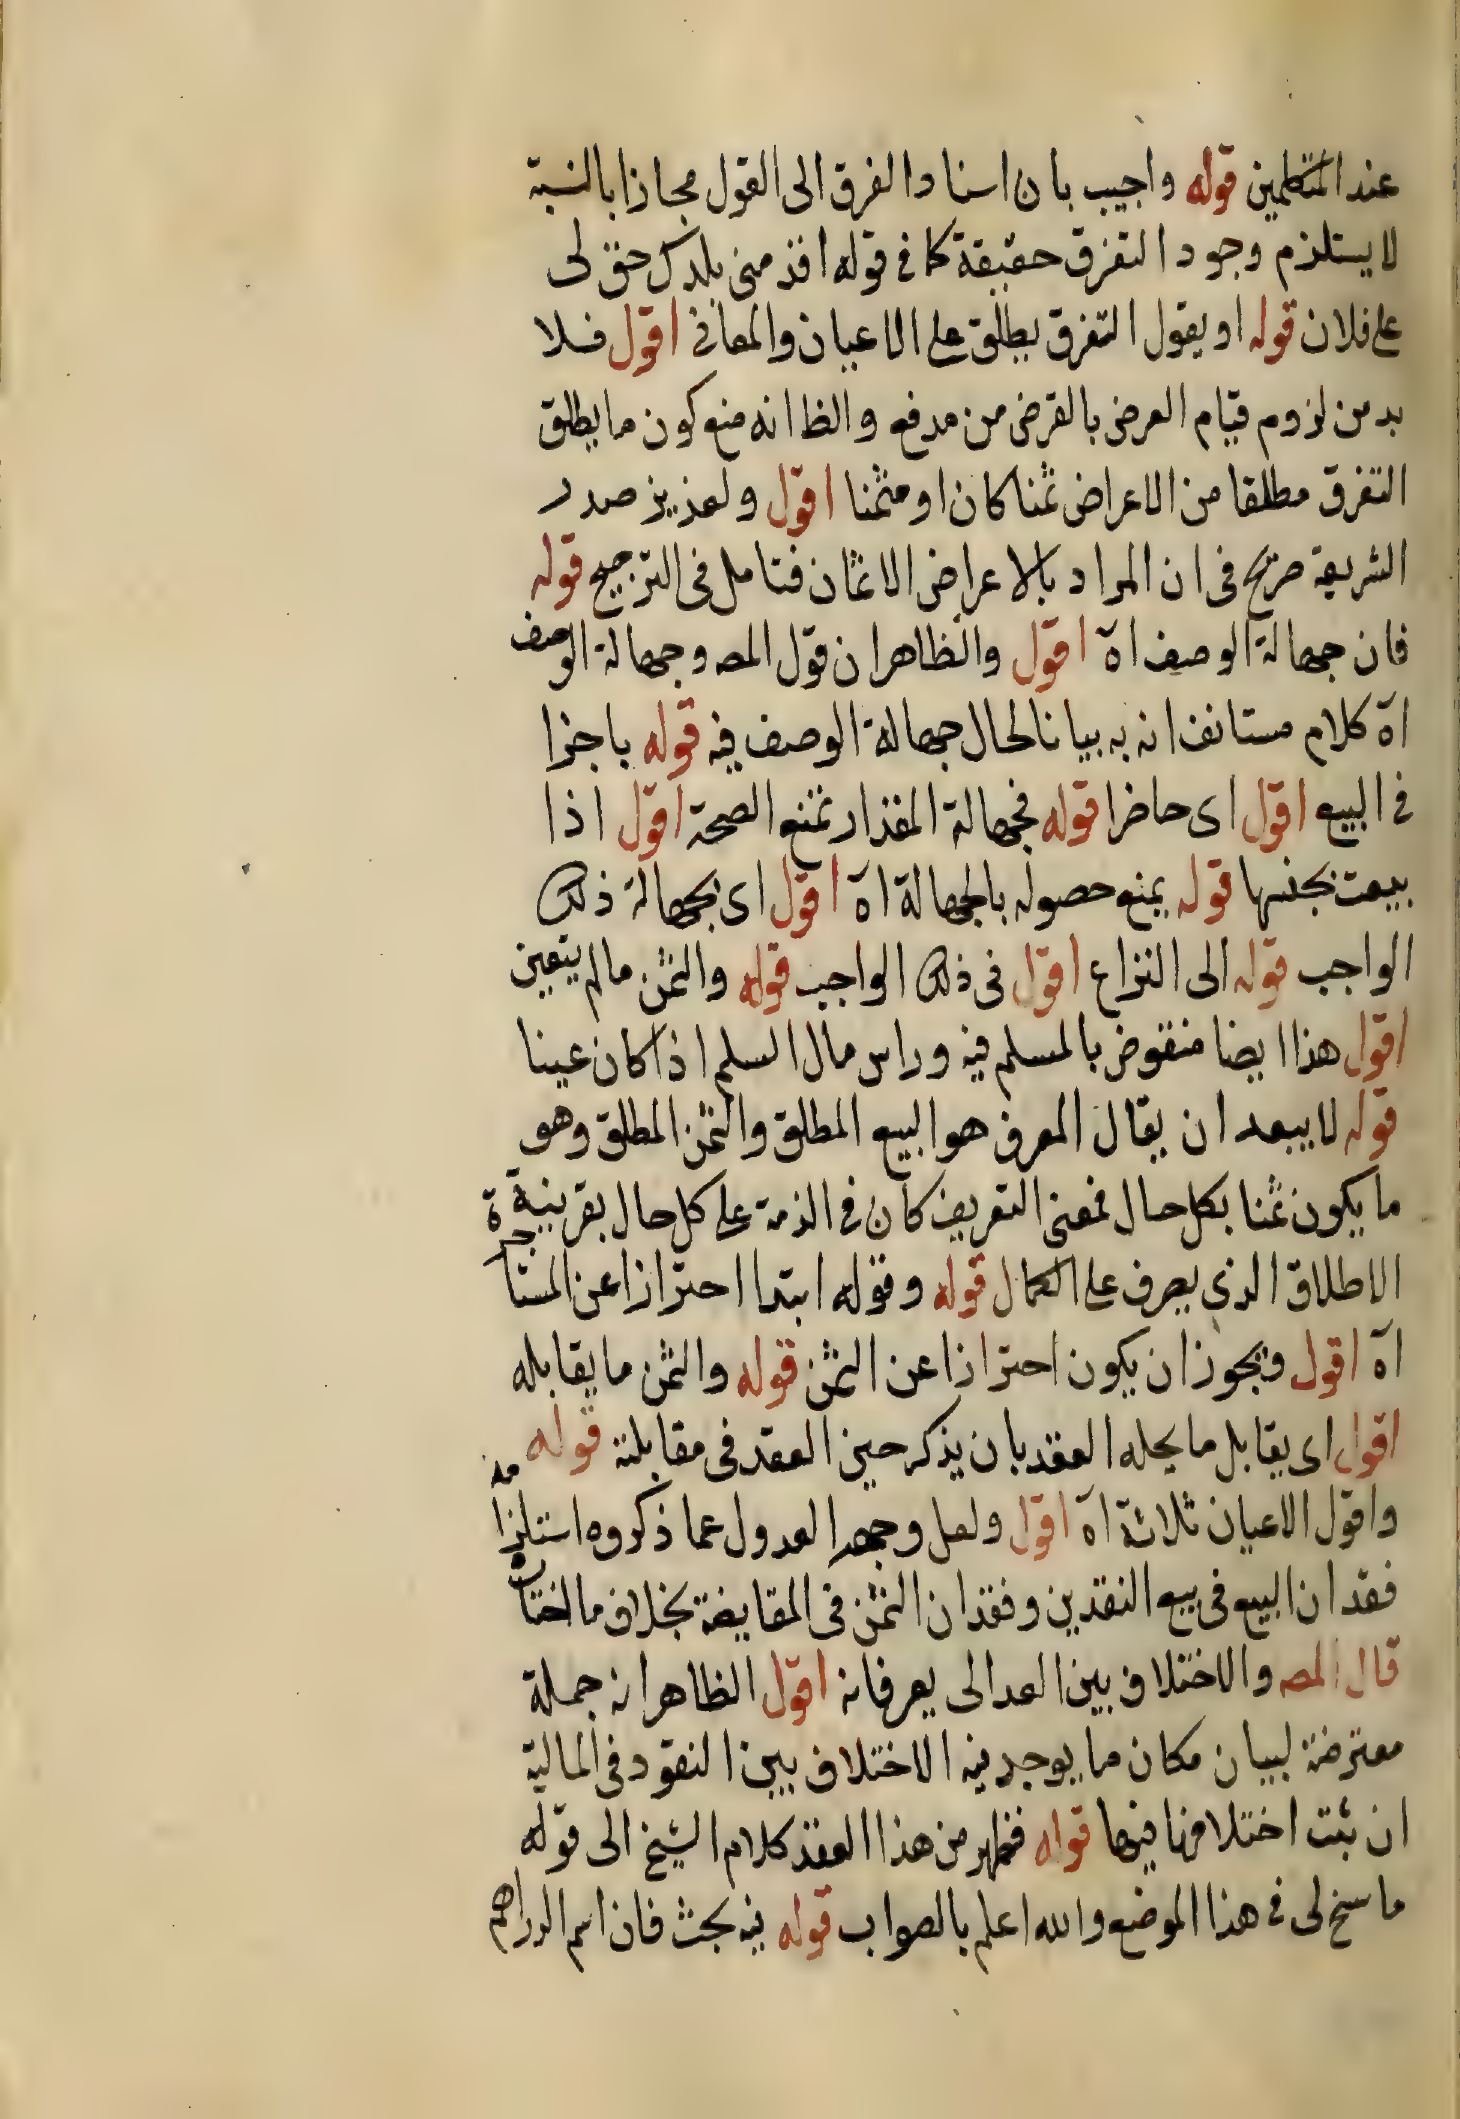 عند المتكلمين قوله واجيب بان اسناد الفرق الى القول مجازا بالنسبة
لا يستلزم وجود التفرق حقيقة كما فى قوله افذ منى بلدك حق لى
على فلان قوله او يقول التفرق يطلق على الاعيان والمعانى اقول فلا
بد من لزوم قيام العرض بالقرض من مدفع والظ انه منع كون ما يطلق
التفرق مطلقا من الاعراض ثمنا كان او مثمنا اقول ولعذيز صدر
الشريعة صريح فى ان المراد بالاعراض الاثمان فتامل فى الترجيح قوله
فان جهالة الوصف اه اقول والظاهر ان قول المصه وجهالة الوصف
اه كلام مستانف انه به بيانا لحال جهالة الوصف فيه قوله باجزا
فى البيع اقول اى حاضرا قوله فجهالة المقدار تمنع الصحة اقول اذا
بيعت بجنسها قوله يمنع حصوله بالجهالة اه اقول اى بجهالة ذلك
الواجب قوله الى النزاع اقول فى ذلك الواجب قوله والثمن ما لم يتعين
اقول هذا ايضا منقوض بالمسلم فيه وراس مال السلم اذا كان عينا
قوله لا يبعد ان يقال المعرف هو البيع المطلق والثمن المطلق وهو
ما يكون ثمنا بكل حال فمعنى التعريف كان فى الذمة على كل حال بقرينية
الاطلاق الذى يصرف على الكمال قوله وقوله ابتدا احترازا عن المستاجرة
اه اقول ويجوز ان يكون احترازا عن الثمن قوله والثمن ما يقابله
اقول اى يقابل ما يحله العقد بان يذكر حين العقد فى مقابلته قوله
واقول الاعيان ثلاثة اه اقول ولعل وجه العدول عما ذكروه استلزامه
فقدان البيع فى بيع النقدين وفقدان الثمن فى المقايضة بخلاف ما اختاره
قال المصه والاختلاف بين العدالى يعرفانه اقول الظاهر انه جملة
معترضة لبيان مكان ما يوجد فيه الاختلاف بين النقود فى المالية
ان ثبت اختلافها فيها قوله فظهر من هذا العقد كلام الشيخ الى قوله
ما سنح لى فى هذا الموضع والله اعلم بالصواب قوله فيه بحث فان اسم الدراهم